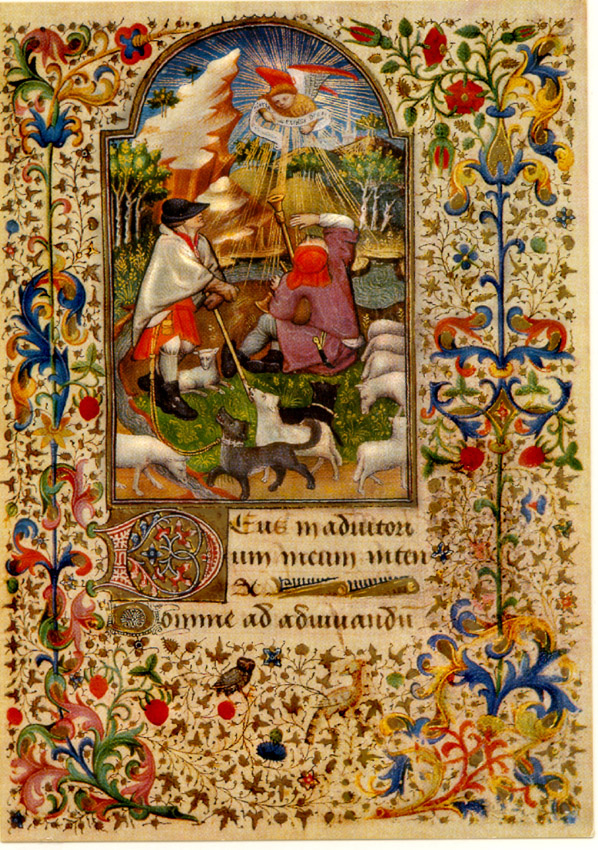 Deus in adiutori
um meum inten
de
Domine ad adiuuandu